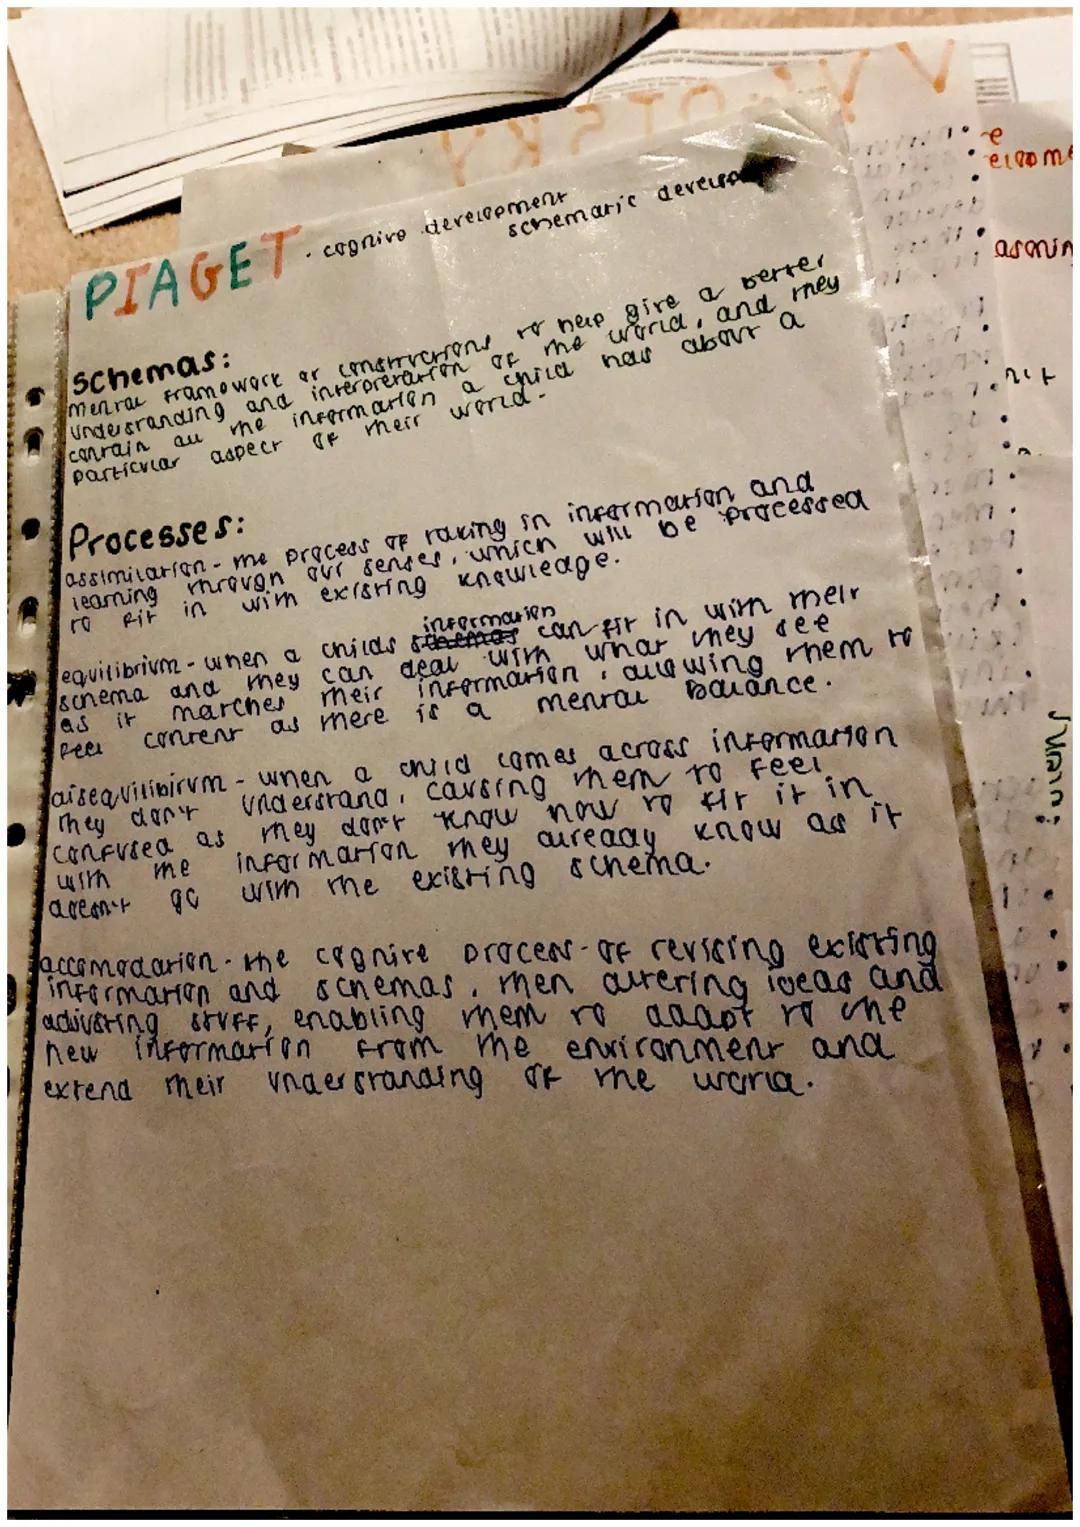 PIAGET · cognive development
schematic develop
Schemas:
mental framework or constructions to help give a better
understanding and interpretation of the world, and they
contain all the information a child has about a
particular aspect of their world.
Processes:
assimilation - the process of taking in information and
learning through our senses, which will be processed
to fit in with existing knowledge.
information
equilibrium - when a childs schemas can fit in with their
schema and they can deal with what they see
as it matches their information, allowing them to
feel content as there is a mental balance.
disequilibirum - when a child comes across information
they don't understand, causing them to feel
confused as they don't know how to fit it in
with the information they already know as it
doesn't go with the existing schema.
accomodation - the cognitve process of revising existing
information and schemas, then altering ideas and
adjusting stuff, enabling them to adapt to the
new information from the environment and
extend their understanding of the world.